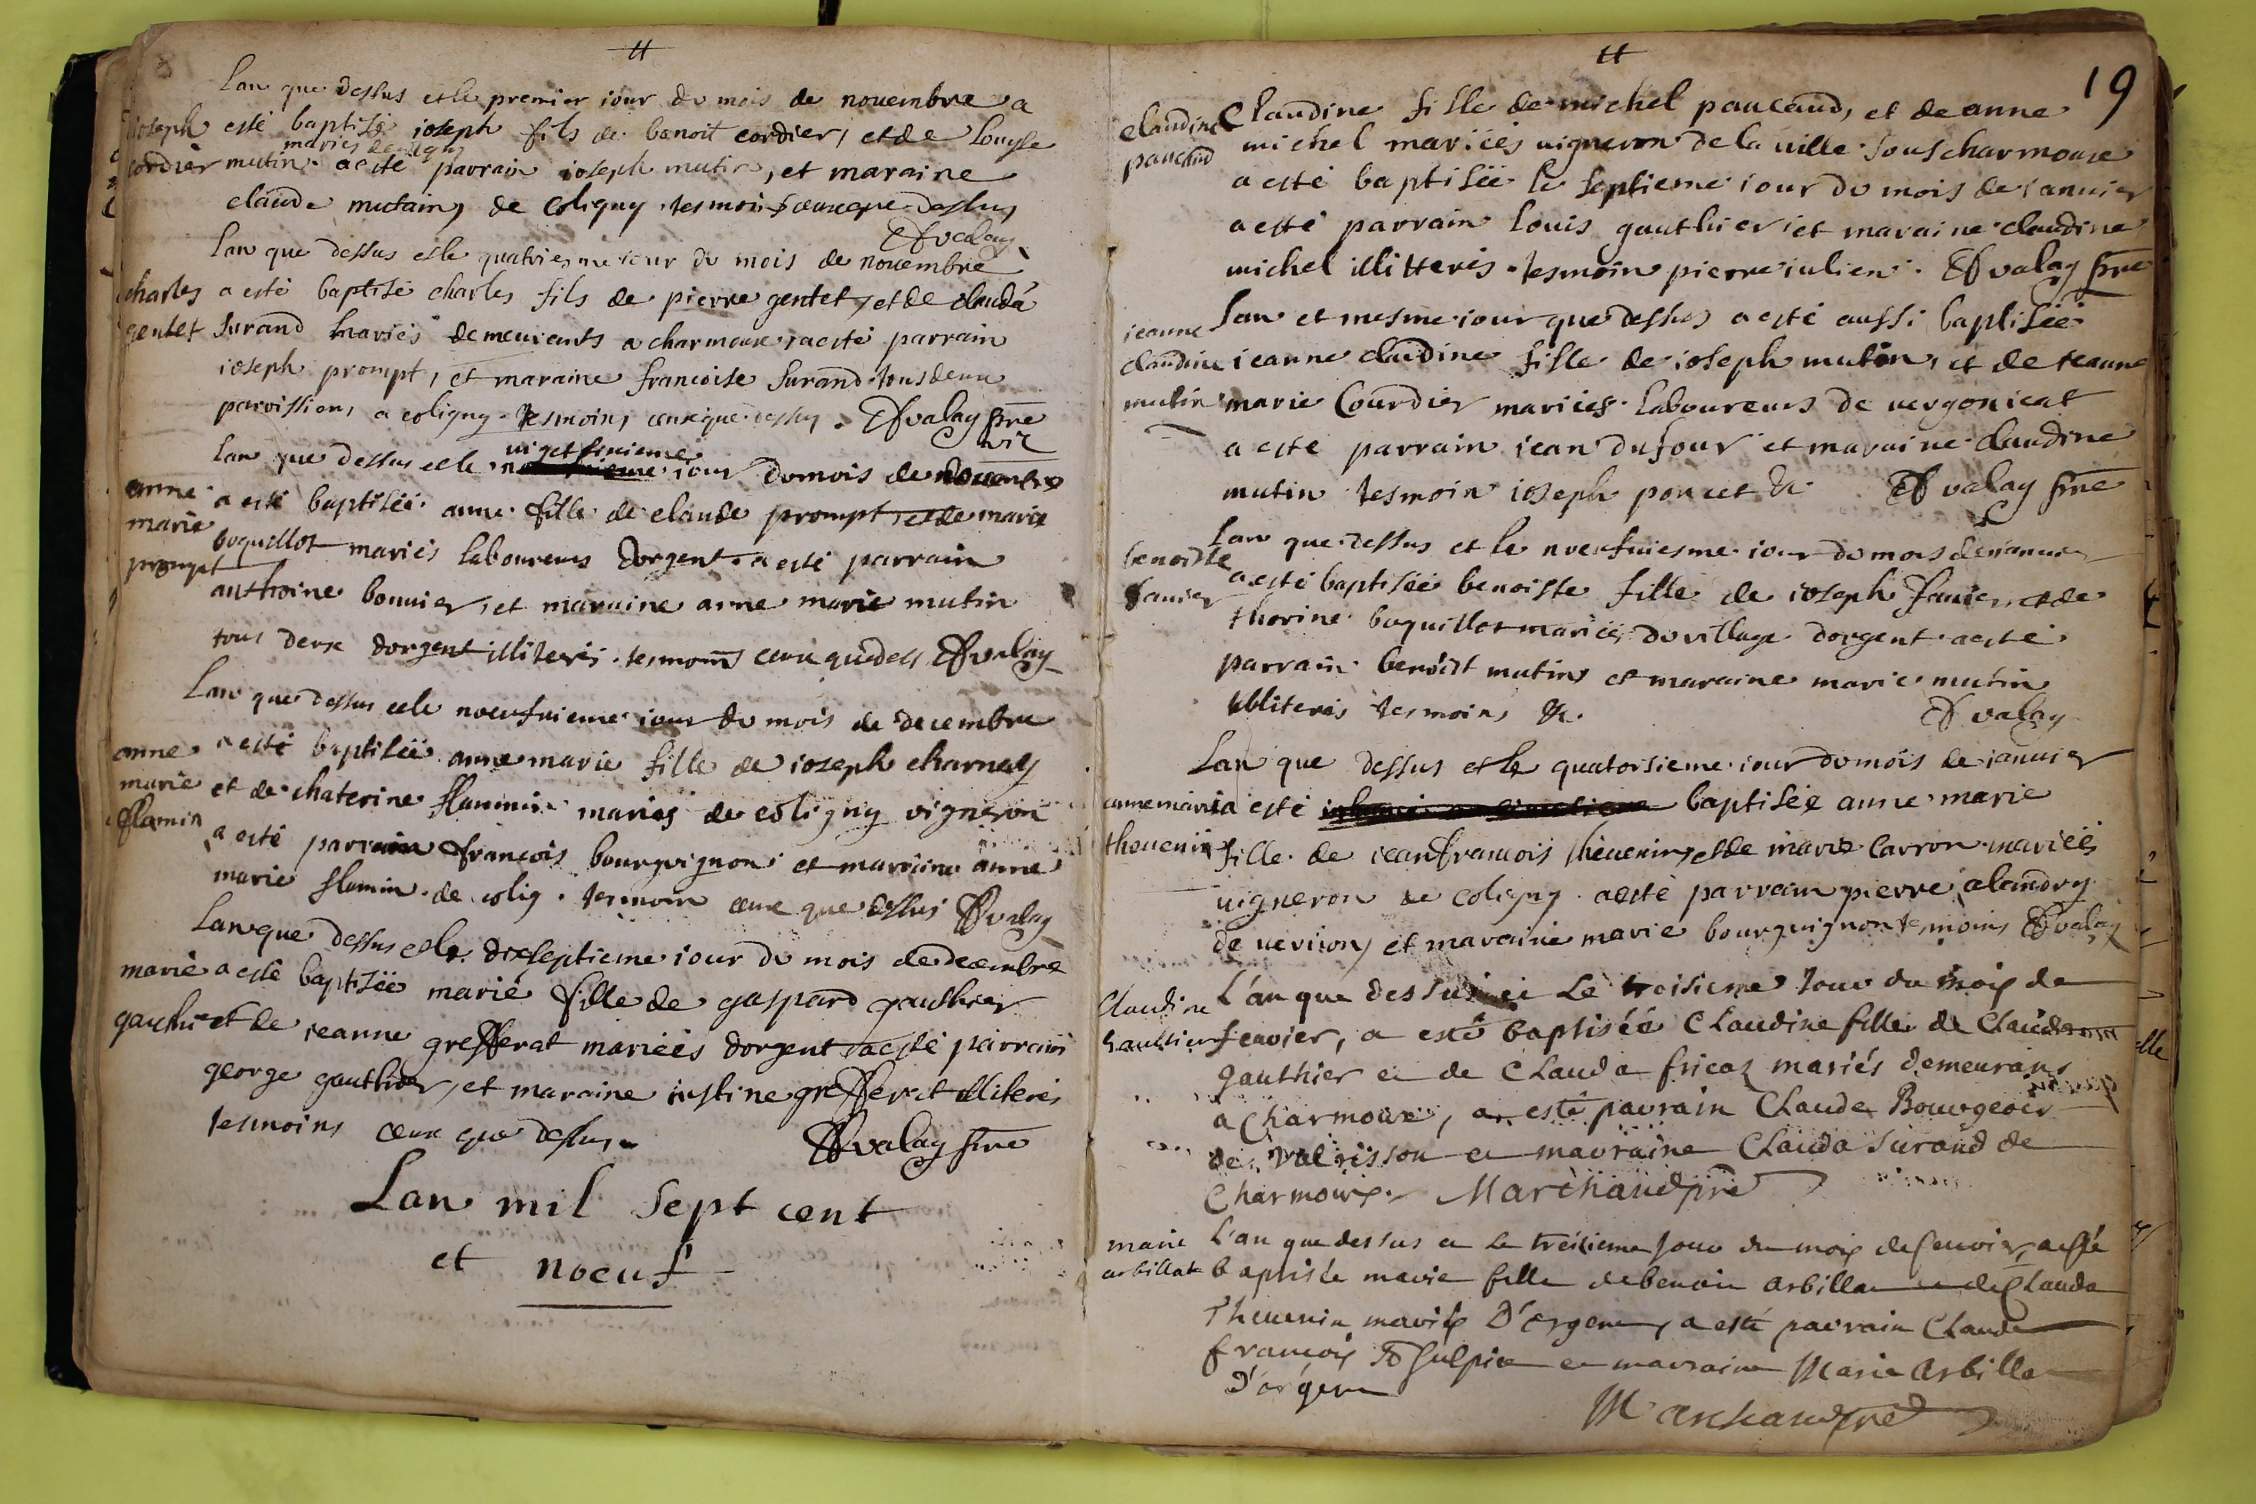 Lan que dessus et le premier iour du mois de nouembre a
ioseph esté baptisé ioseph fils de benoit cordier, et de Louyse
mariés
cordier mutin a esté parrain ioseph mutin, et maraine
claude mutain, de coligny tesmoins ceux que dessus
Valay
Lan que dessus et le quatriesme iour du mois de nouembre
charles a esté baptisé charles fils de pierre gentet, et de clauda
gentet surand mariés demeurants a charmoux, a esté parrain
ioseph prompt, et maraine francoise surand tous deux
parroissiens a coligny. tesmoins ceux que dessus. Valay ptre
vic
uigt sixieme
Lan que dessus et le iour du mois de nouembre
anne a esté baptisée anne fille de claude prompt, et de marie
marie
boquillot mariés laboureurs dorgent a esté parrain
prompt
anthoine bonnier, et maraine anne marie mutin
tous deux dorgent illiterés tesmoins ceux que dess Valay
Lan que dessus et le noeufuieme iour du mois de decembre
anne a esté baptisée anne marie fille de ioseph charnay
marie et de chaterine flammin mariés de coligny vigneron
fflamin a esté parrain francois bourguignon et maraine anne
marie flamin de colig. tesmoin ceux que dessus Valay
Lan que dessus et le dixseptieme iour du mois de decembre
marie a esté baptisée marie fille de gaspard gauthier
gauthier et de ieanne grefferat mariées dorgent a esté parrain
george gauthier, et maraine iustine grefferat illiterés
tesmoins ceux que dessus Valay ptre
Lan mil sept cent
et noeuf
19
claudine Claudine fille de michel paucand, et de anne
paucand michel mariées uigneron de la uille sous charmoux
a esté baptisée le septieme iour du mois de ianuier
a esté parrain louis gauthier et maraine claudine
michel illitterés. tesmoin pierre iulien. Valay ptre
Lan et mesme iour que dessus a esté aussi baptisée
ieanne
claudine ieanne claudine fille de ioseph mutin, et de ieanne
mutin marie Courdier mariées laboureurs de uergonicat
a esté parrain iean dufour et maraine claudine
mutin tesmoin ioseph poncet &c. Valay ptre
Lan que dessus et le noeufuiesme iour du mois de ianuier
benoiste a esté baptisée benoiste fille de ioseph Janier, et de
Janier thorine boquillot mariées du village dorgent a esté
parrain benoist mutin, et maraine marie mutin
illiterés tesmoins &c. Valay
Lan que dessus et le quatorsieme iour du mois de ianuier
anne marie a esté baptisée anne marie
theuenin fille de iean francois theuenin, et de marie carron mariées
uigneron de coligny a esté parrain pierre alandry
de ueriion, et maraine marie bourguignon tesmoins Valay
Claudine L'an que dessus et le troisieme Jour du mois de
Gauthier feurier, a esté baptisée Claudine fille de Claude
gauthier et de Clauda fricaz mariés demeurans
a Charmoux, a esté parrain Claude Bourgeois
de Valrisson et marraine Clauda Surand de
Charmoux. Marchand ptre
marie L'an que dessus et le treisieme Jour du mois de feurier, a esté
arbillat baptisée marie fille de benoit arbillat et de Clauda
Theuenin mariés D'orgent, a esté parrain Claude
francois St Sulpice et marraine Marie Arbillat
D'orgent
Marchand ptre